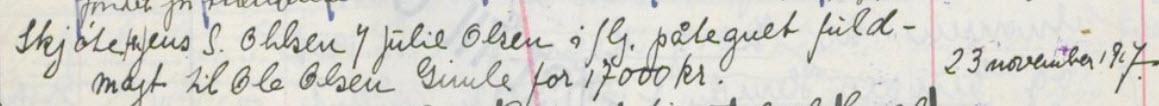 Skjøte fra Jens S. Ohlsen & Julie Olsen iflg. påtegnet fuld-
magt til Ole Olsen Gimle for 17000 kr. 23 november 1917.